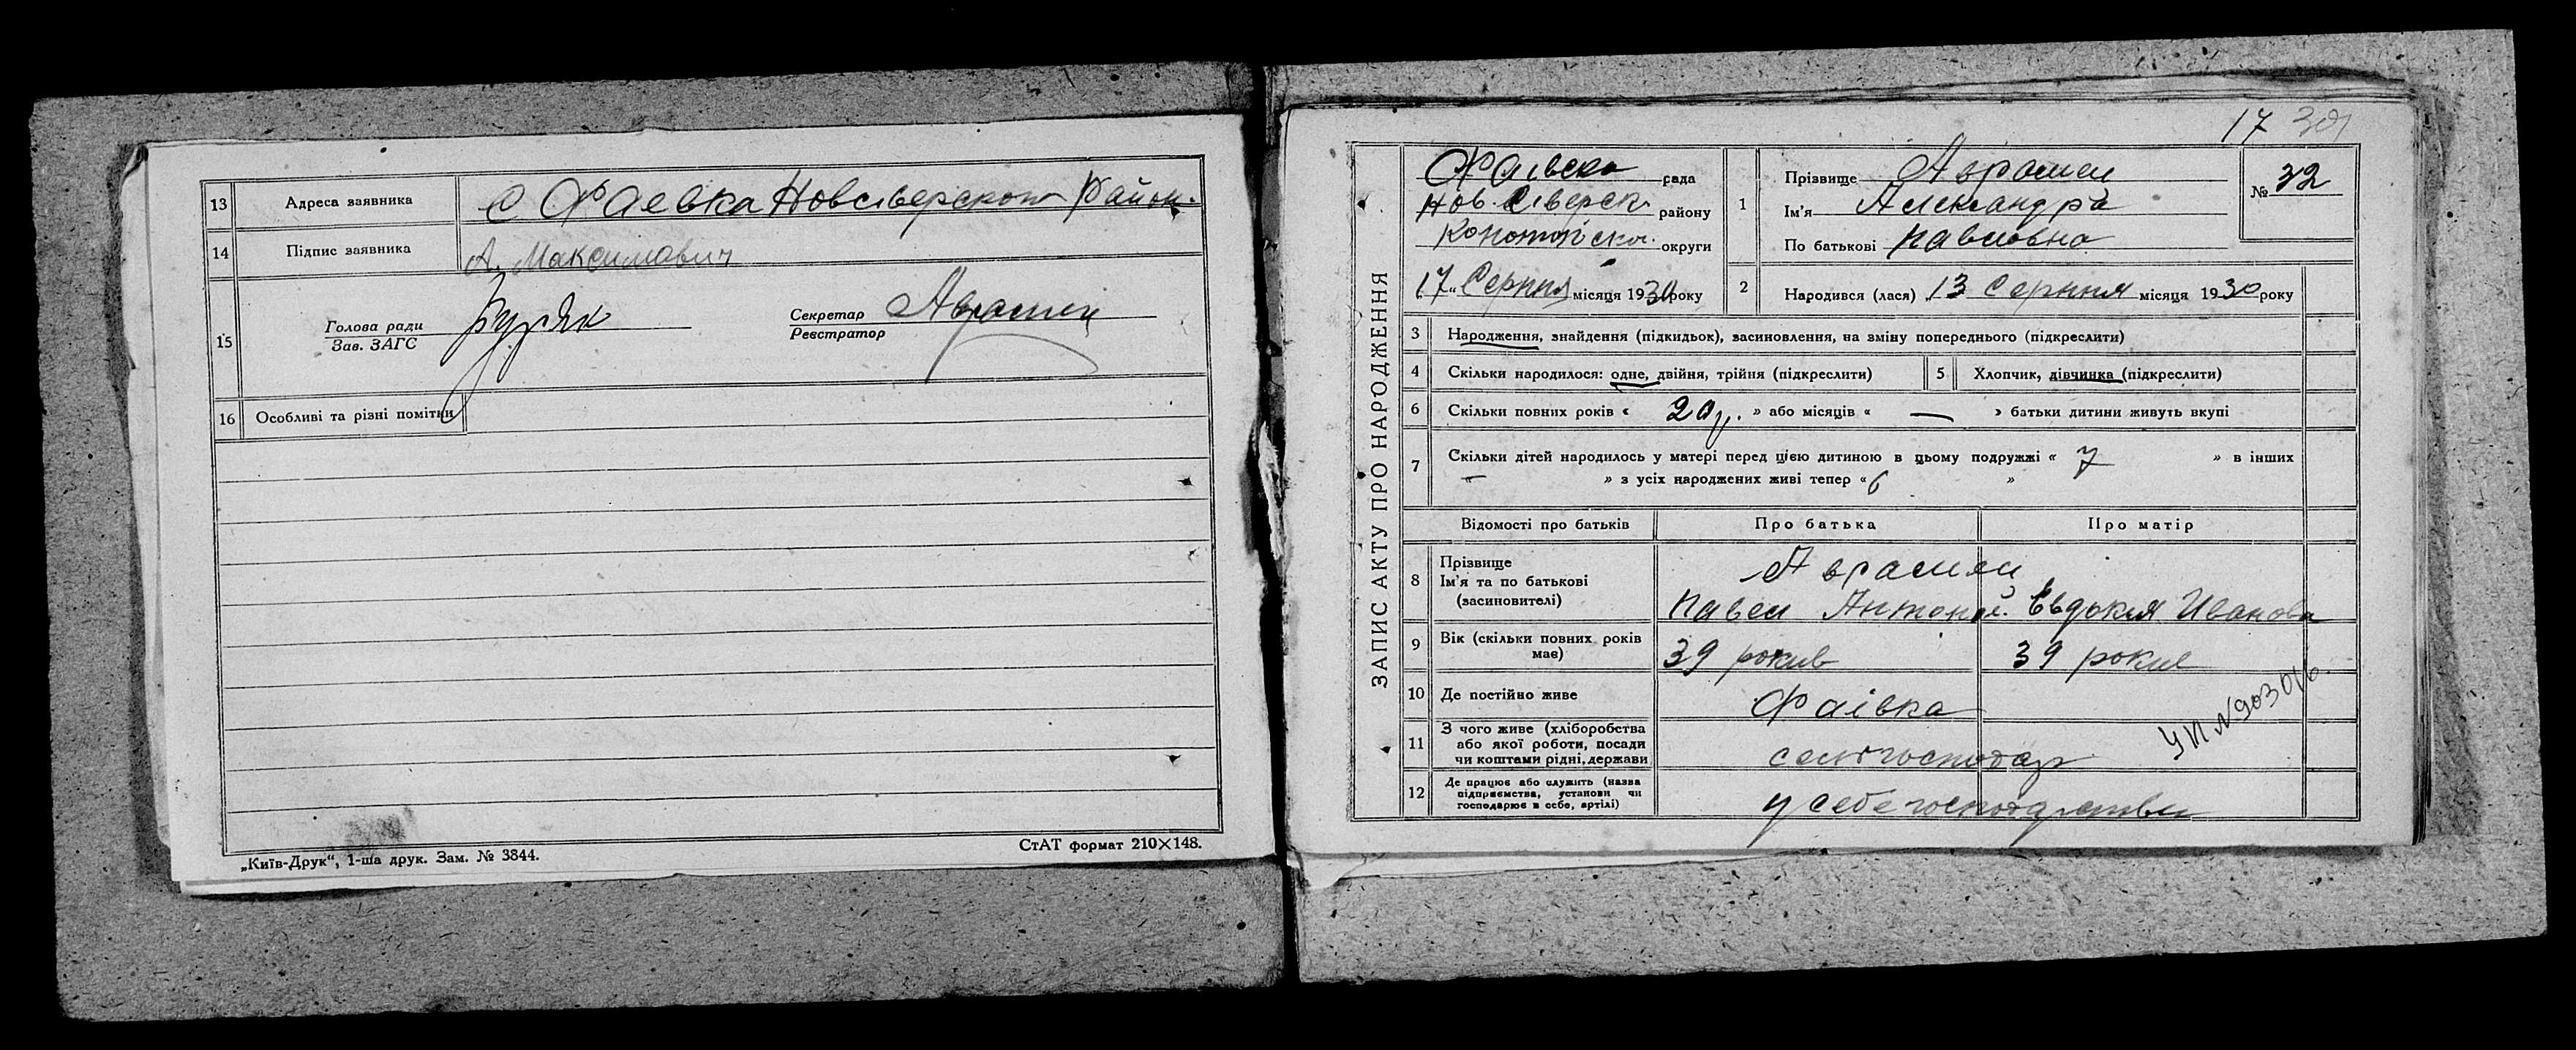 13 Адреса заявника с. Фаевка Новсіверского Район.
14 Підпис заявника А. Максимович
15 Голова ради Буряк Секретар Аврамен
Зав. ЗАГС Реєстратор
16 Особливі та різні помітки
„Київ-Друк“, 1-ша друк. Зам. № 3844.
СтАТ формат 210×148.
17 301
ЗАПИС АКТУ ПРО НАРОДЖЕННЯ
Фаівско рада
Нов. Сіверск. району
Конотопіско. округи
„17„ Серпня місяця 1930 року
1 Прізвище Аврамен
Ім'я Александра
По батькові Павловна
№ 32
2 Народився (лася) 13 Серпня місяця 1930 року
3 Народження, знайдення (підкидьок), засиновлення, на зміну попереднього (підкреслити)
4 Скільки народилося: одне, двійня, трійня (підкреслити) 5 Хлопчик, дівчинка (підкреслити)
6 Скільки повних років « 20 р. » або місяців « — » батьки дитини живуть вкупі
7 Скільки дітей народилось у матері перед цією дитиною в цьому подружжі « 7 » в інших
« — » з усіх народжених живі тепер « 6 »
Відомості про батьків Про батька Про матір
8 Прізвище
Ім'я та по батькові
(засиновителі)
Аврамен
Павел Антонов. Евдокия Иванова
9 Вік (скільки повних років має) 39 рокив 39 рокив
10 Де постійно живе Фаівка
11 З чого живе (хліборобства
або якої роботи, посади
чи коштами рідні, держави
12 Де працює або служить (назва
підприємства, установи чи
господарює в себе, артілі)
у себе